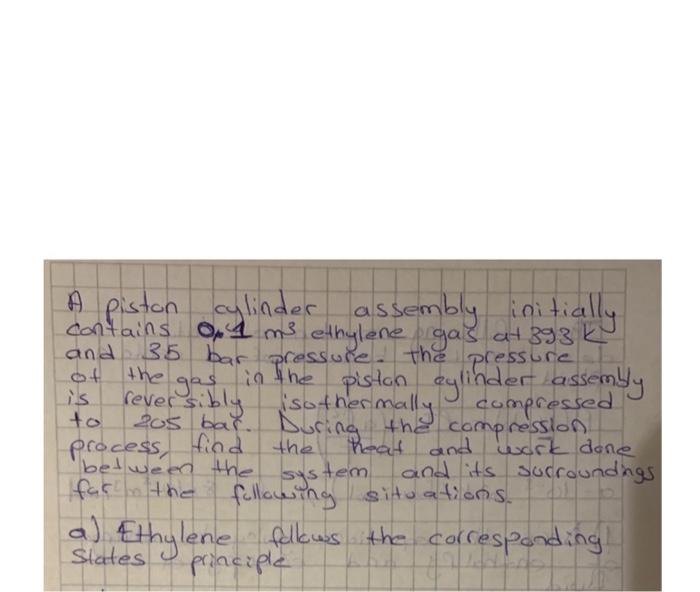 A piston cylinder assembly initially
contains 0.1 m³ ethylene gas at 393 K
and 35 bar pressure. the pressure
of the gas in the piston cylinder assembly
is reversibly isothermally compressed
to 205 bar. During the compression
process, find the heat and work done
between the system and its surroundings
for the following situations.
a) Ethylene follows the corresponding
States principle